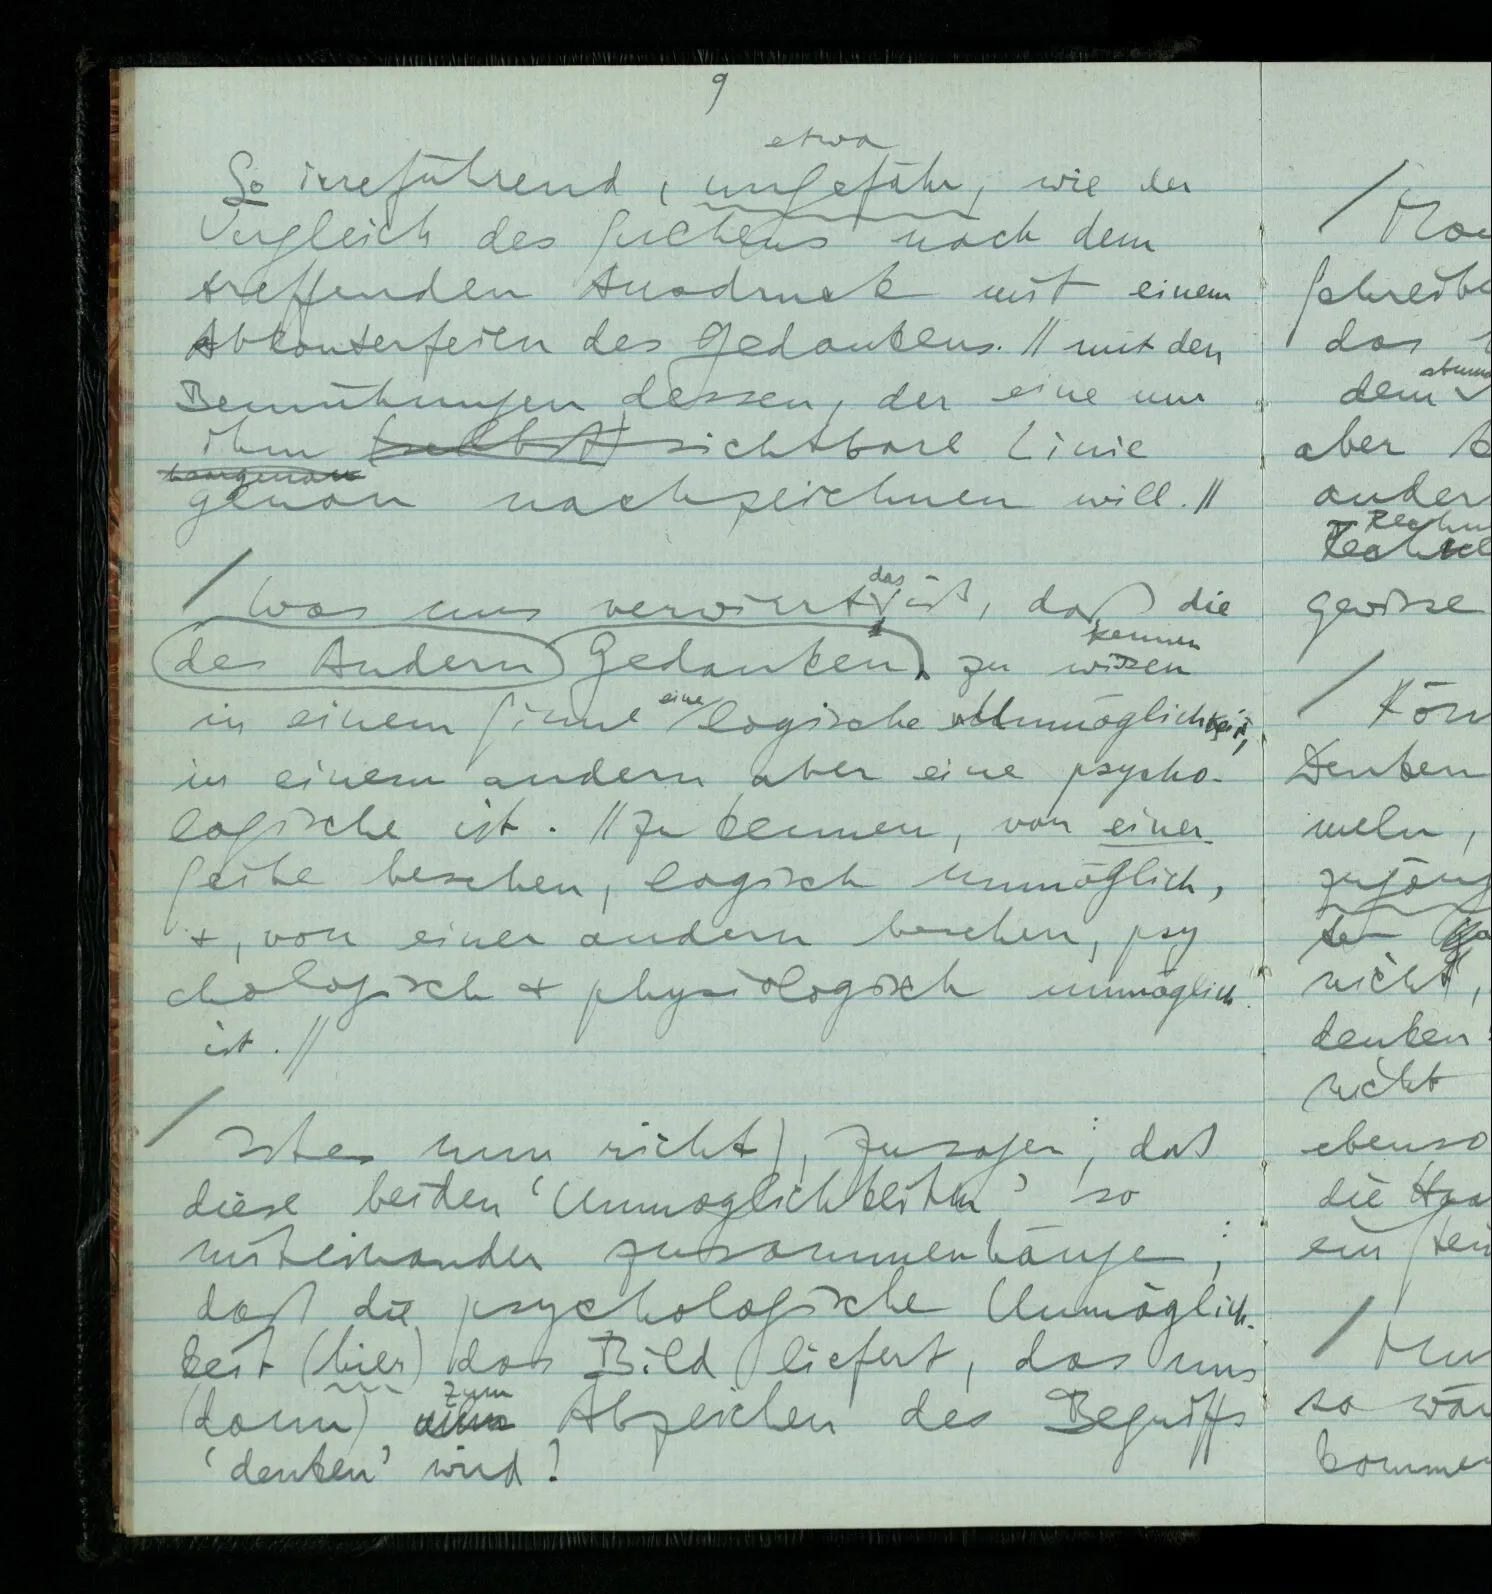 9
etwa
So irreführend, ungefähr, wie der
Vergleich des Suchens nach dem
treffenden Ausdruck mit einem
Abkonterfeien des Gedankens. // mit den
Bemühungen dessen, der eine nur
ihm (selbst) sichtbare Linie
haargenau
genau nachzeichnen will. //
das
/ Was uns verwirrt ist, daß die
kennen
des Andern Gedanken zu wissen
in einem Sinne eine logische Unmöglichkeit,
in einem andern aber eine psycho-
logische ist. // zu kennen, von einer
Seite besehen, logisch unmöglich,
+, von einer andern besehen, psy
chologisch + physiologisch unmöglich
ist. //
/ Ist es nun richt), zu sagen; daß
diese beiden ‘Unmöglichkeiten’ so
miteinander zusammenhänge;
daß die psychologische Unmöglich-
keit (hier) das Bild liefert, das uns
zum
(dann) Abzeichen des Begriffs
‘denken’ wird?
/
Schreibe
das
dem
aber
ander
gewisse
/ Kön
Denken
meln,
zugäng
nicht,
denken
nicht
ebenso
die Haa
ein
/
so wär
kommen